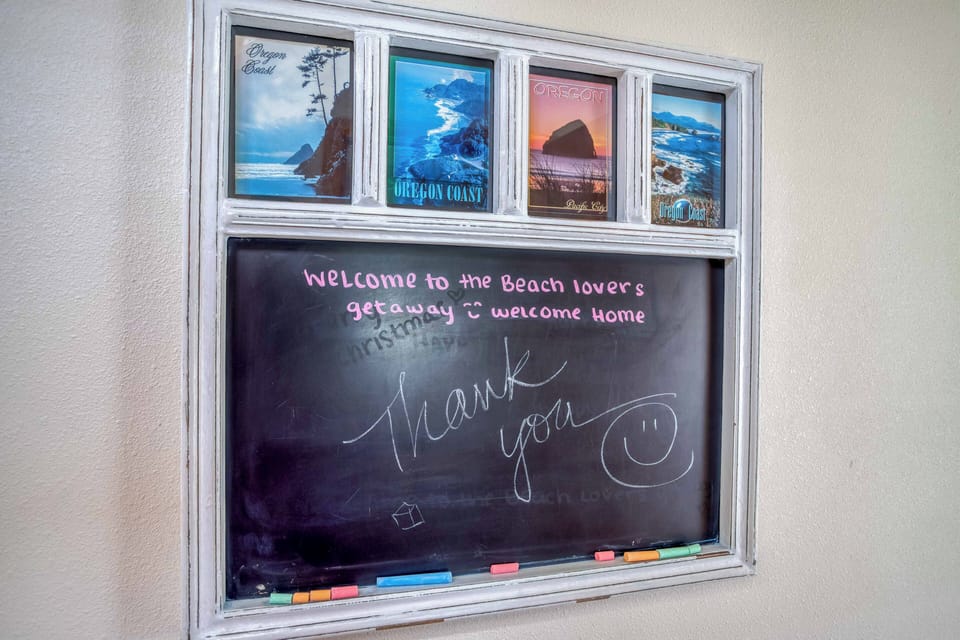 Oregon
Coast
OREGON COAST
OREGON
Pacific City
Oregon Coast
Welcome to the Beach lovers
getaway welcome Home
christmas
Thank
you
the Beach lovers